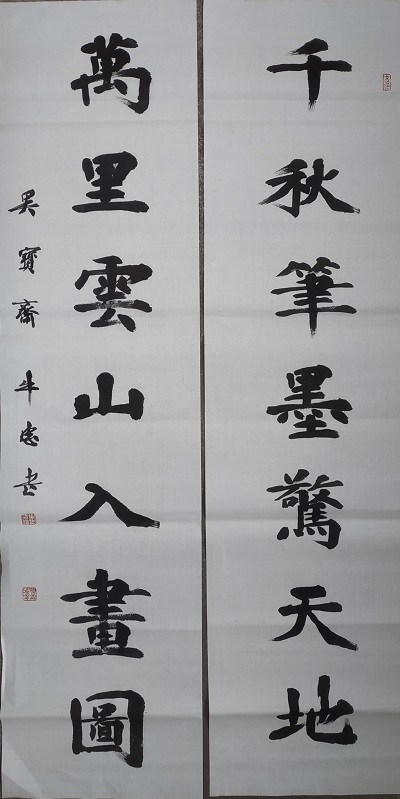 千秋筆墨驚天地
萬里雲山入畫圖
吳寶齋牛忠書